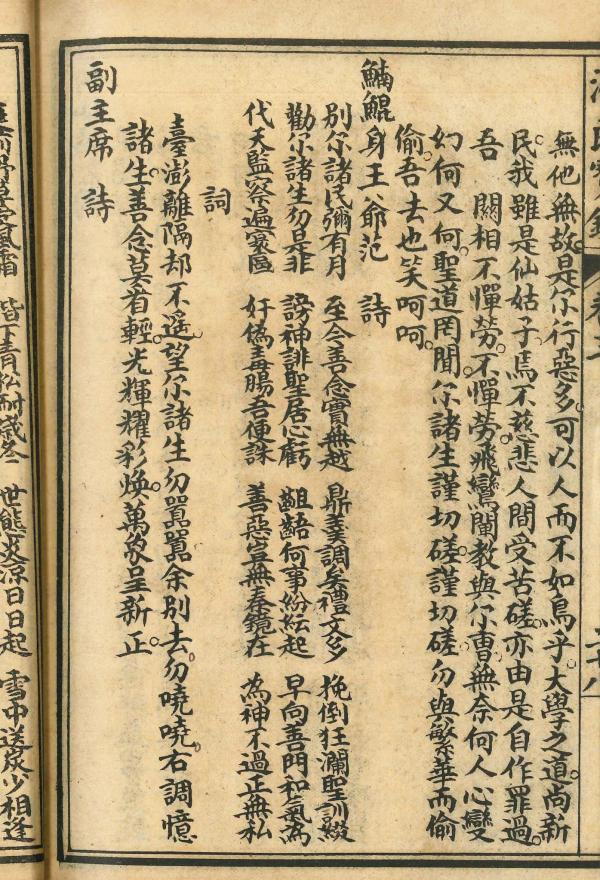 無他無故。是尔行惡多。可以人而不如鳥乎。大學之道。尚新
民。我雖是仙姑子。焉不慈悲人間受苦磋。亦由是自作罪過。
吾　關相不憚勞。不憚勞。飛鸞闡教與尔曹。無奈何人心變
幻何又何。聖道罔聞。尔諸生謹切磋。謹切磋。勿與繁華而偷
偷。吾去也笑呵呵。
鯆鯤身王爺范　詩
別尔諸民彌有月　至今善念實無越　鼎羹調矣禮文多　挽倒狂瀾聖訓綴
勸尔諸生勿是非　謗神誹聖居心虧　齟齬何事紛紜起　早向善門和氣為
代天監察遍寰區　奸偽毒腸吾便誅　善惡豈無秦鏡在　為神不過正無私
詞
臺澎離隔却不遙。望尔諸生勿囂囂。余別去。勿嘵嘵。右調憶
諸生。善念莫看輕。光輝耀彩煥。萬象呈新正。
副主席　詩
風霜　階下青松耐歲冬　世態炎涼日日起　雪中送炭少相逢